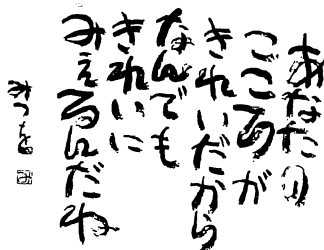 あなたの
こころが
きれいだから
なんでも
きれいに
みえるんだね
みつを